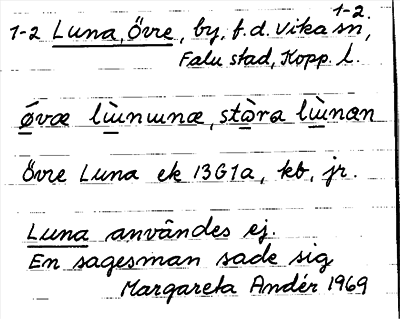 1-2.
1-2 Luna, Övre, by, f.d. Vika sn,
Falu stad, Kopp. l.
óvæ lùnunæ, stòra lùnæn
Övre Luna ek 13G1a, kb, jr.
Luna användes ej.
En sagesman sade sig
Margareta Andér 1969